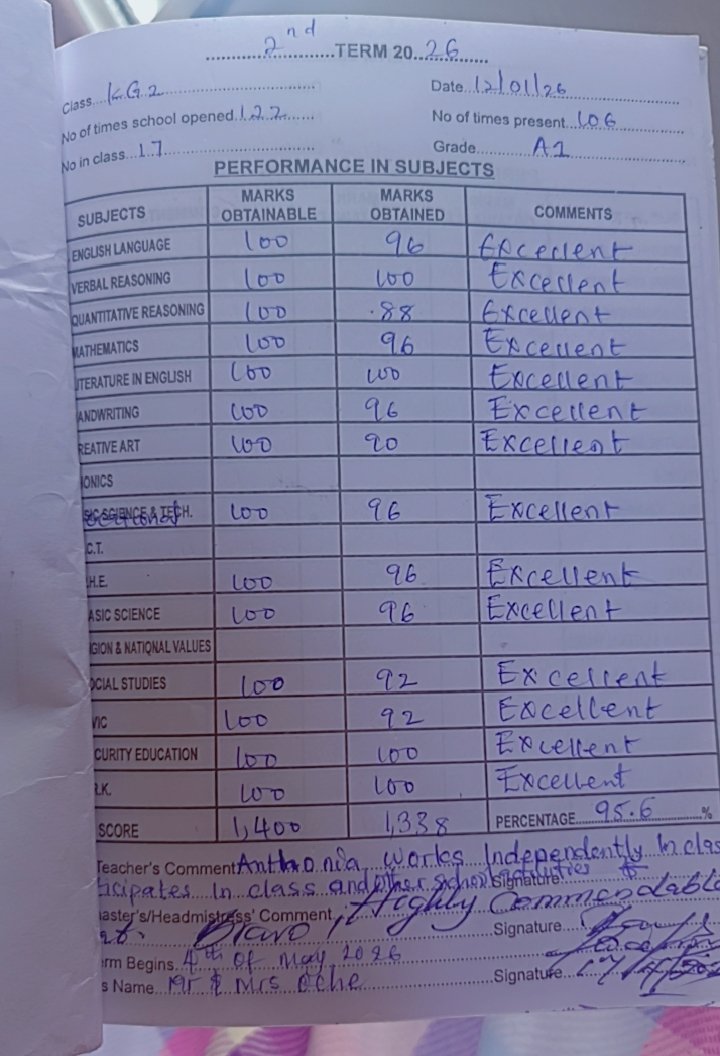 2nd TERM 20 26
Class KG2 Date 12/01/26
No of times school opened 122 No of times present 106
No in class 17 Grade A1
PERFORMANCE IN SUBJECTS
SUBJECTS MARKS OBTAINABLE MARKS OBTAINED COMMENTS
ENGLISH LANGUAGE 100 96 Excellent
VERBAL REASONING 100 100 Excellent
QUANTITATIVE REASONING 100 88 Excellent
MATHEMATICS 100 96 Excellent
ITERATURE IN ENGLISH 100 100 Excellent
ANDWRITING 100 96 Excellent
REATIVE ART 100 90 Excellent
ONICS
SIC SCIENCE & TECH. 100 96 Excellent
C.T.
.H.E. 100 96 Excellent
ASIC SCIENCE 100 96 Excellent
IGION & NATIONAL VALUES
OCIAL STUDIES 100 92 Excellent
VIC 100 92 Excellent
CURITY EDUCATION 100 100 Excellent
R.K. 100 100 Excellent
SCORE 1,400 1,338 PERCENTAGE 95.6 %
Teacher's Comment Anthonia works Independently In clas
ticipates In class and other school activities Signature
aster's/Headmistress' Comment Highly Commendable
Bravo! Signature
rm Begins 4th of May 2026
s Name Mr & Mrs Oche Signature